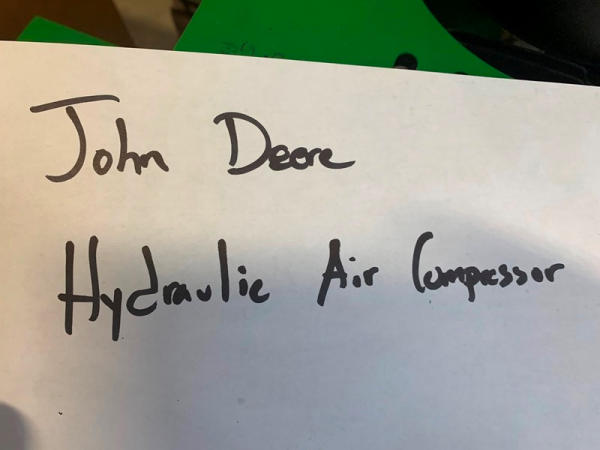 John Deere
Hydraulic Air Compressor